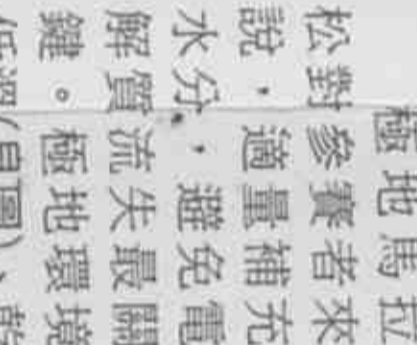 極地馬拉
松對參賽者來
說，適量補充
水分，避免電
解質流失最關
鍵。極地環境
低溫(見圖)、乾